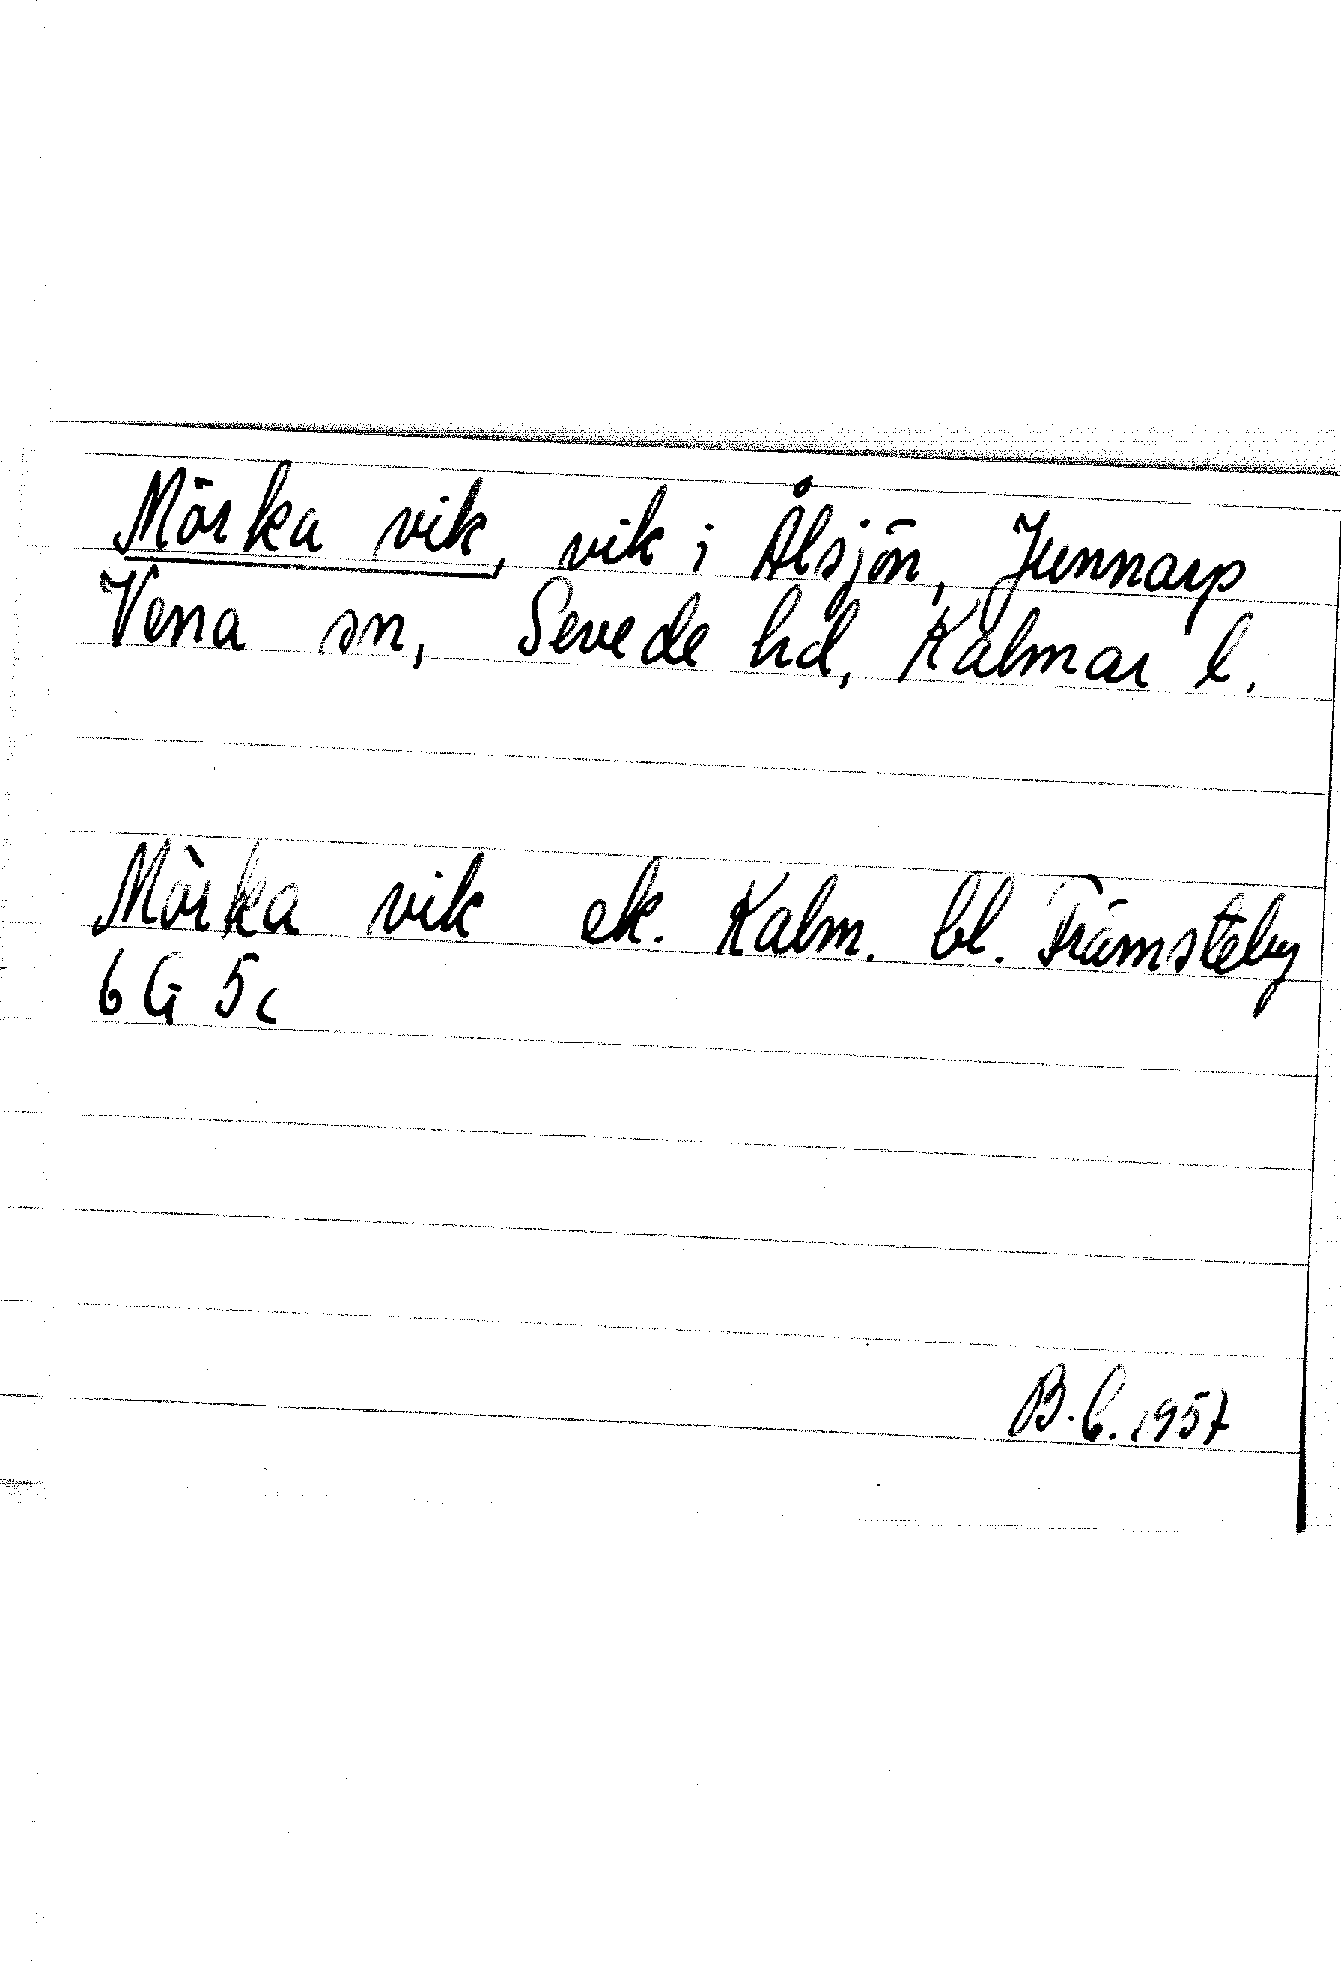 Mörka vik, vik i Ålsjön, Junnarp
Vena sn, Sevede hd, Kalmar l.
Mörka vik ek. Kalm. bl. Främsteby
6 G 5c
B.C. 1957